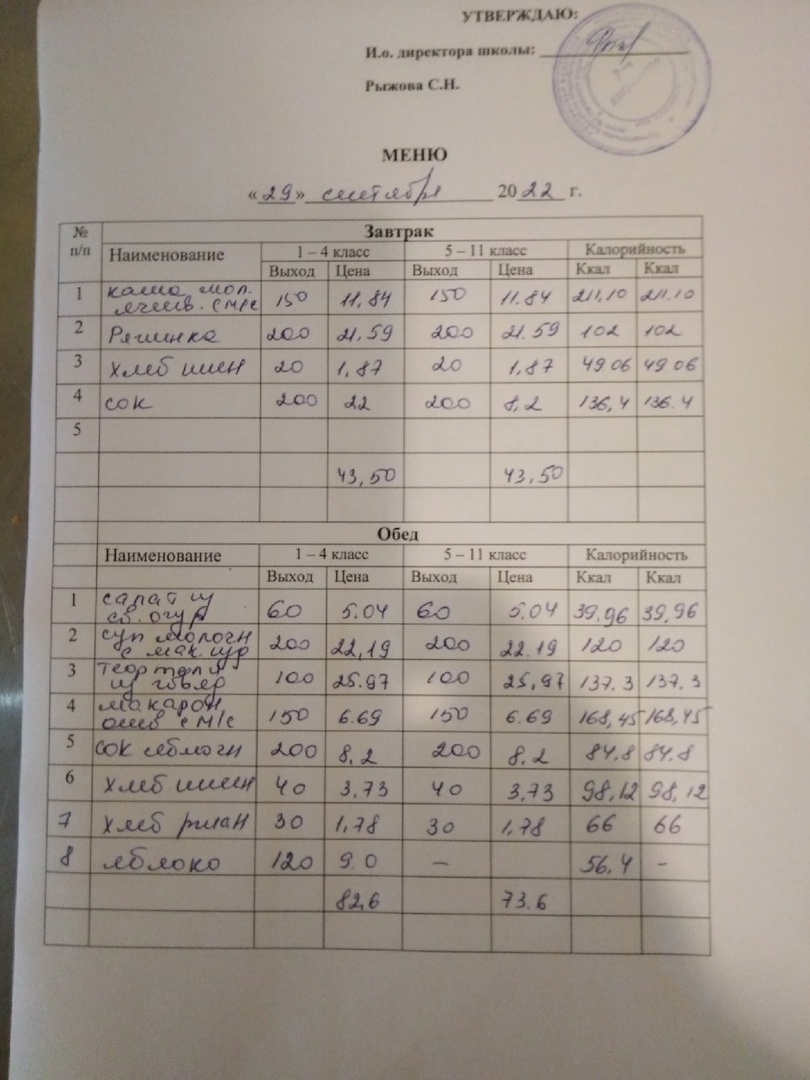 УТВЕРЖДАЮ:
И.о. директора школы:
Рыжова С.Н.
МЕНЮ
«29» сентября 2022 г.
№ п/п Завтрак
Наименование 1 – 4 класс 5 – 11 класс Калорийность
Выход Цена Выход Цена Ккал Ккал
1 каша мол. ячнев. с м/с 150 11,84 150 11.84 211,10 211.10
2 Ряженка 200 21,59 200 21.59 102 102
3 хлеб пшен 20 1,87 20 1,87 49.06 49 06
4 сок 200 22 200 8,2 136,4 136.4
5
43,50 43,50
Обед
Наименование 1 – 4 класс 5 – 11 класс Калорийность
Выход Цена Выход Цена Ккал Ккал
1 салат из св. огур 60 5.04 60 5.04 39.96 39,96
2 суп молочн с мак изд 200 22,19 200 22.19 120 120
3 из говяд 100 25.97 100 25,97 137.3 137.3
4 макарон отв с м/с 150 6.69 150 6.69 168,45 168,45
5 сок яблочн 200 8,2 200 8,2 84.8 84.8
6 хлеб пшен 40 3,73 40 3,73 98,12 98,12
7 хлеб ржан 30 1,78 30 1,78 66 66
8 яблоко 120 9.0 – 56,4 -
82,6 73.6